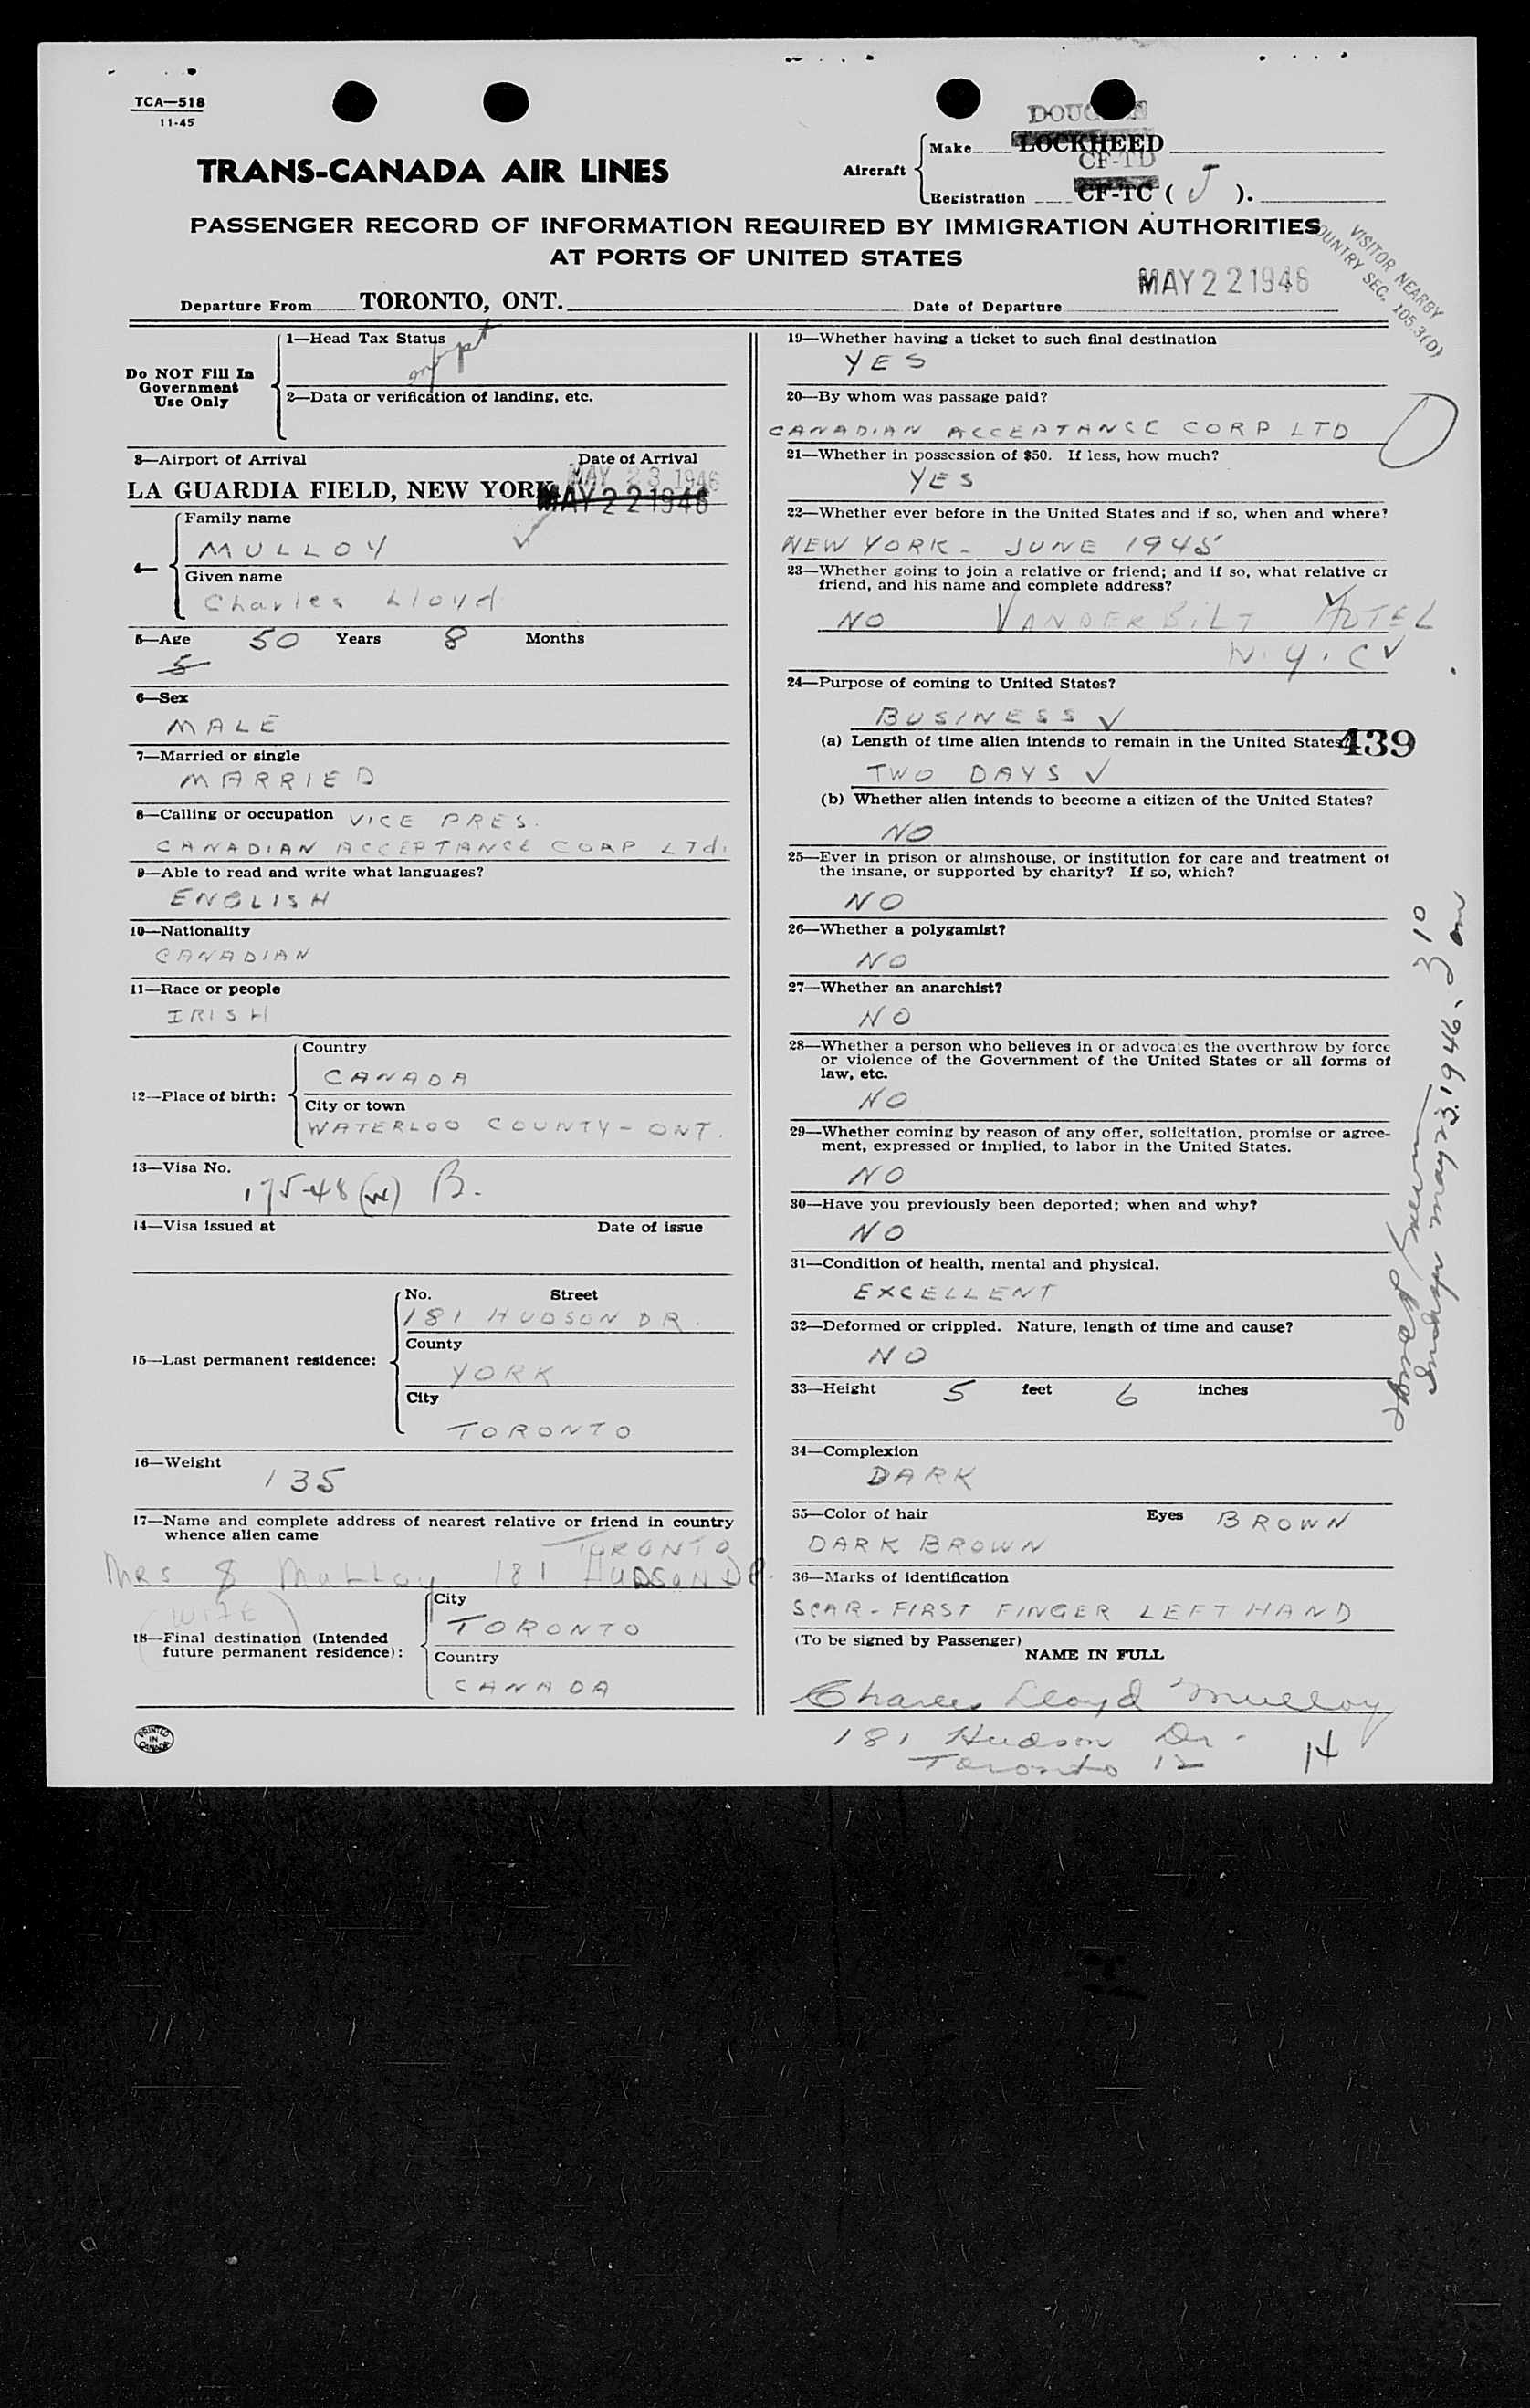 TCA—518
11-45
DOUGLAS
Aircraft
Make LOCKHEED
CF-TD
Registration CF-TC ( J ).
TRANS-CANADA AIR LINES
PASSENGER RECORD OF INFORMATION REQUIRED BY IMMIGRATION AUTHORITIES
AT PORTS OF UNITED STATES
VISITOR NEARBY
COUNTRY SEC. 105.3(D)
Departure From TORONTO, ONT. Date of Departure MAY 22 1946
Do NOT Fill In
Government
Use Only
1—Head Tax Status
2—Data or verification of landing, etc.
3—Airport of Arrival Date of Arrival
MAY 23 1946
LA GUARDIA FIELD, NEW YORK MAY 22 1946
4—
Family name
MULLOY
Given name
Charles Lloyd
5—Age 50 Years 8 Months
5
6—Sex
MALE
7—Married or single
MARRIED
8—Calling or occupation VICE PRES.
CANADIAN ACCEPTANCE CORP LTd.
9—Able to read and write what languages?
ENGLISH
10—Nationality
CANADIAN
11—Race or people
IRISH
12—Place of birth:
Country
CANADA
City or town
WATERLOO COUNTY - ONT.
13—Visa No.
17548 (W) B.
14—Visa issued at Date of issue
15—Last permanent residence:
No. Street
181 HUDSON DR.
County
YORK
City
TORONTO
16—Weight
135
17—Name and complete address of nearest relative or friend in country
whence alien came
TORONTO
MRS Mulloy 181 HUDSON DR.
(WIFE)
18—Final destination (Intended
future permanent residence):
City
TORONTO
Country
CANADA
PRINTED
IN
CANADA
19—Whether having a ticket to such final destination
YES
20—By whom was passage paid?
CANADIAN ACCEPTANCE CORP LTD
21—Whether in possession of $50. If less, how much?
YES
22—Whether ever before in the United States and if so, when and where?
NEW YORK - JUNE 1945
23—Whether going to join a relative or friend; and if so, what relative or
friend, and his name and complete address?
NO VANDERBILT HOTEL
N.Y.C
24—Purpose of coming to United States?
BUSINESS
(a) Length of time alien intends to remain in the United States?
439
TWO DAYS
(b) Whether alien intends to become a citizen of the United States?
NO
25—Ever in prison or almshouse, or institution for care and treatment of
the insane, or supported by charity? If so, which?
NO
26—Whether a polygamist?
NO
27—Whether an anarchist?
NO
28—Whether a person who believes in or advocates the overthrow by force
or violence of the Government of the United States or all forms of
law, etc.
NO
29—Whether coming by reason of any offer, solicitation, promise or agree-
ment, expressed or implied, to labor in the United States.
NO
30—Have you previously been deported; when and why?
NO
31—Condition of health, mental and physical.
EXCELLENT
32—Deformed or crippled. Nature, length of time and cause?
NO
33—Height 5 feet 6 inches
34—Complexion
DARK
35—Color of hair Eyes BROWN
DARK BROWN
36—Marks of identification
SCAR - FIRST FINGER LEFT HAND
(To be signed by Passenger)
NAME IN FULL
Charles Lloyd Mulloy
181 Hudson Dr.
Toronto 12
H
May 23. 1946. 3 10 am